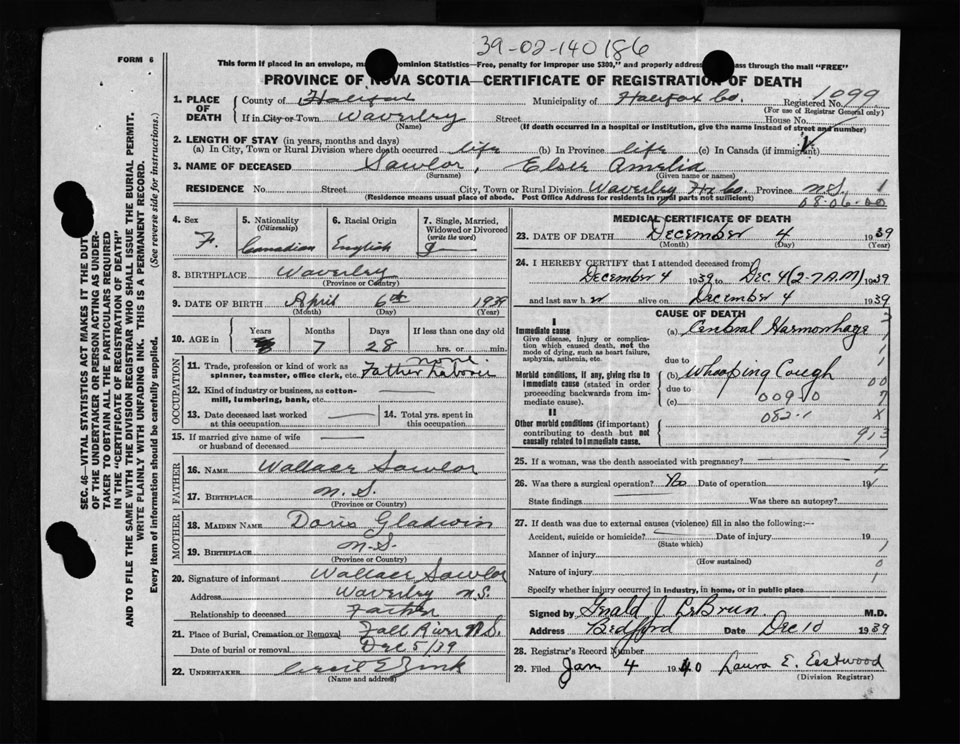 39-02-140186
FORM 6
This form if placed in an envelope, ma Dominion Statistics—Free, penalty for improper use $300," and properly address ass through the mail "FREE"
PROVINCE OF NOVA SCOTIA—CERTIFICATE OF REGISTRATION OF DEATH
1. PLACE OF DEATH
County of Halifax Municipality of Halifax Co. Registered No. 1099
(For use of Registrar General only)
If in City or Town Waverley Street House No.
(Name) (If death occurred in a hospital or institution, give the name instead of street and number)
2. LENGTH OF STAY (in years, months and days)
(a) In City, Town or Rural Division where death occurred life (b) In Province life (c) In Canada (if immigrant)
3. NAME OF DECEASED Sawlor, Elsie Amelia
(Surname) (Given name or names)
RESIDENCE No. Street City, Town or Rural Division Waverley Hx Co. Province N.S. 1
(Residence means usual place of abode. Post Office Address for residents in rural parts not sufficient) 08-06-00
4. Sex F.
5. Nationality (Citizenship) Canadian
6. Racial Origin English
7. Single, Married, Widowed or Divorced (write the word) S
8. BIRTHPLACE Waverley
(Province or Country)
9. DATE OF BIRTH April 6th 1939
(Month) (Day) (Year)
10. AGE in Years Months 7 Days 28 If less than one day old hrs. or min.
OCCUPATION
11. Trade, profession or kind of work as spinner, teamster, office clerk, etc. none. Father Labourer
12. Kind of industry or business, as cotton-mill, lumbering, bank, etc.
13. Date deceased last worked at this occupation
14. Total yrs. spent in this occupation
15. If married give name of wife or husband of deceased
FATHER
16. NAME Wallace Sawlor
17. BIRTHPLACE N.S.
(Province or Country)
MOTHER
18. MAIDEN NAME Doris Gladwin
19. BIRTHPLACE N.S.
(Province or Country)
20. Signature of informant Wallace Sawlor
Address Waverley N.S.
Relationship to deceased Father
21. Place of Burial, Cremation or Removal Fall River N.S.
Date of burial or removal Dec 5/39
22. UNDERTAKER Zink
(Name and address)
MEDICAL CERTIFICATE OF DEATH
23. DATE OF DEATH December 4 1939
(Month) (Day) (Year)
24. I HEREBY CERTIFY that I attended deceased from
December 4 1939 to Dec. 4 (2-7 A.M) 1939
and last saw her alive on December 4 1939
CAUSE OF DEATH
I
Immediate cause
Give disease, injury or complication which caused death, not the mode of dying, such as heart failure, asphyxia, asthenia, etc.
(a) Cerebral Haemorrhage
due to
Morbid conditions, if any, giving rise to immediate cause (stated in order proceeding backwards from immediate cause).
(b) Whooping Cough
due to
(c) 009-0
II
Other morbid conditions (if important) contributing to death but not causally related to immediate cause.
082-1
913
25. If a woman, was the death associated with pregnancy?
26. Was there a surgical operation? No Date of operation 19
State findings Was there an autopsy?
27. If death was due to external causes (violence) fill in also the following:—
Accident, suicide or homicide? Date of injury 19
(State which)
Manner of injury
(How sustained)
Nature of injury
Specify whether injury occurred in industry, in home, or in public place
Signed by Gerald J. LeBrun M.D.
Address Bedford Date Dec 10 1939
28. Registrar's Record Number
29. Filed Jan 4 1940 Laura E. Eastwood
(Division Registrar)
SEC. 46—VITAL STATISTICS ACT MAKES IT THE DUTY
OF THE UNDERTAKER OR PERSON ACTING AS UNDER-
TAKER TO OBTAIN ALL THE PARTICULARS REQUIRED
IN THE "CERTIFICATE OF REGISTRATION OF DEATH"
AND TO FILE THE SAME WITH THE DIVISION REGISTRAR WHO SHALL ISSUE THE BURIAL PERMIT.
WRITE PLAINLY WITH UNFADING INK. THIS IS A PERMANENT RECORD.
Every item of information should be carefully supplied. (See reverse side for instructions.)